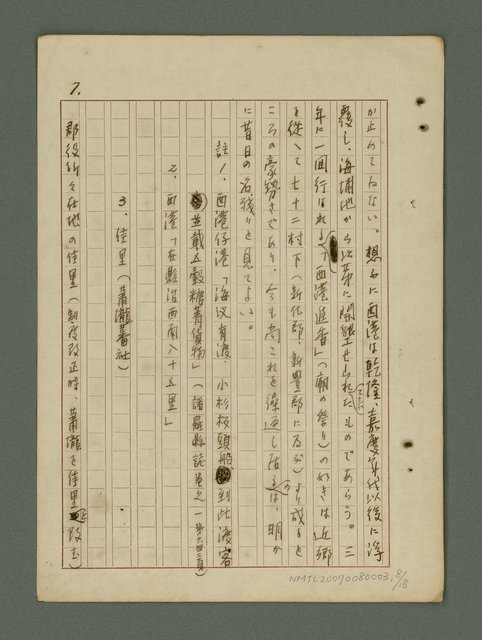 7.
か止めてゐない。想ふに西港は乾隆、嘉慶年代以後に浮
覆し、海埔地から次第に開墾せられてきたものであらう。三
年に一回行はれる「西港進香」(廟の祭り)の如きは近郷
を従へて七十二村下(新化郡、新豊郡に及ぶ)より成ると
ころの豪勢さであり、今も尚これを繰返し居るのは、明か
に昔日の名残りと見てよい。
註1、西港仔港「海汊有渡、小杉板頭船到此渡客
並載五穀糖菁貨物」(諸羅縣誌巻之一 第六四二頁)
2、西港「在縣治西南八十五里」
3、佳里(蕭瀧蕃社)
郡役所々在地の佳里(制度改正時、蕭瀧を佳里と改む)
NMTL20070080003, 8/18